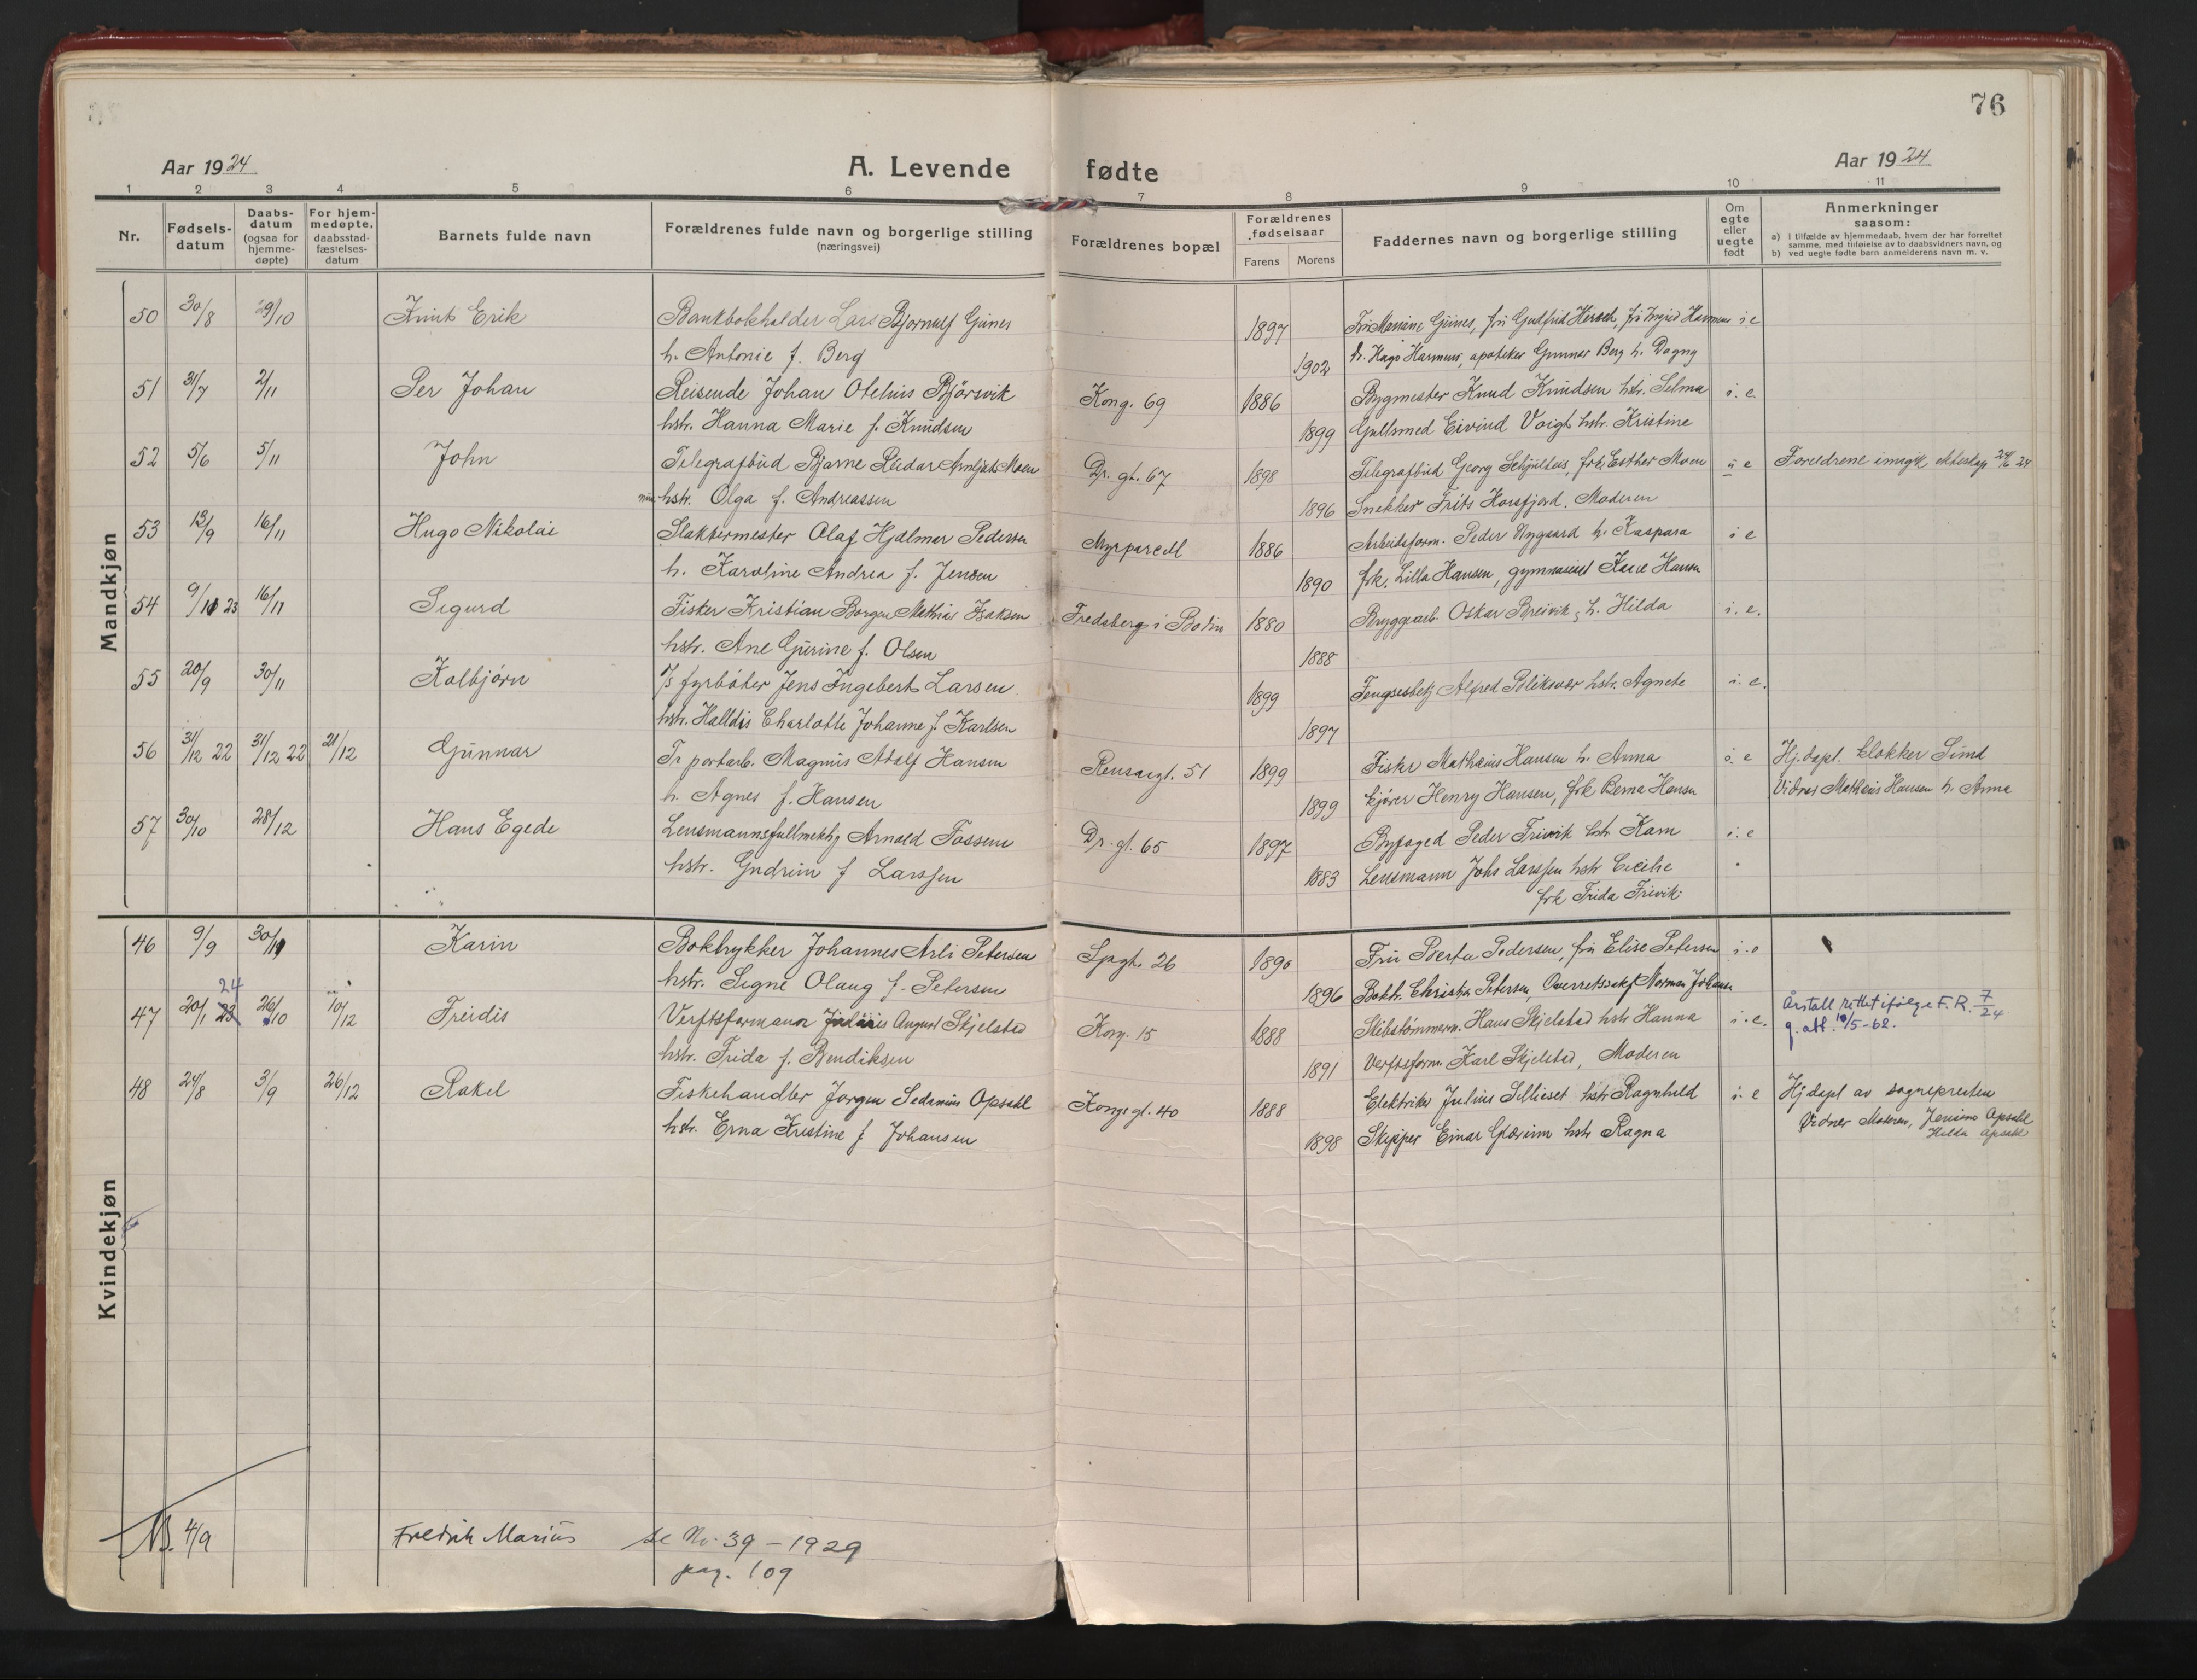 76
Aar 1924
A. Levende fødte
Aar 1924
1 2 3 4 5 6 7 8 9 10 11
Nr.
Fødsels-
datum
Daabs-
datum
(ogsaa for
hjemme-
døpte)
For hjem-
medøpte,
daabsstad-
fæstelses-
datum
Barnets fulde navn
Forældrenes fulde navn og borgerlige stilling
(næringsvei)
Forældrenes bopæl
Forældrenes
fødselsaar
Farens Morens
Faddernes navn og borgerlige stilling
Om
egte
eller
uegte
født
Anmerkninger
saasom:
a) i tilfælde av hjemmedaab, hvem der har forrettet
samme, med tilføielse av to daabsvidners navn, og
b) ved uegte fødte barn anmelderens navn m. v.
Mandkjøn
50 30/8 29/10 Knut Erik Bankbokholder Lars Bjornulf Giines 1897 Fru Mariane Giines, fru Gudfrid Hersch, fru Ingrid Harmens i e
h. Antonie f. Berg 1902 h. Hago Harmens, apoteker Gunnar Berg h. Dagny
51 31/7 2/11 Per Johan Reisende Johan Oteluis Bjørsvik Kong. 69 1886 Bygmester Knud Knudsen hstr. Selma i. e.
hstr. Hanna Marie f. Knudsen 1899 Gullsmed Eivind Voigt hstr. Kristine
52 5/6 5/11 John Telegrafbud Bjarne Reidar Arnljot Moen Dr. gt. 67 1898 Telegrafbud Georg Schjultus, frk. Esther Moen u e Foreldrene inngik ekteskap 24/6 24
hstr. Olga f. Andreassen 1896 Snekker Frits Horsfjord. Moderen
53 13/9 16/11 Hugo Nikolai Slaktermester Olaf Hjalmar Pedersen Myrparcell 1886 Arbeidsform. Peder Nygaard h. Kaspara i e
h. Karoline Andrea f. Jensen 1890 frk. Lilla Hansen, gymnasiast Kaare Hansen
54 9/11 23 16/11 Sigurd Fisker Kristian Borgen Mathias Isaksen Fredsberg i Bodin 1880 Bryggearb. Oskar Breivik, h. Hilda i. e.
hstr. Ane Gurine f. Olsen 1888
55 20/9 30/11 Kolbjørn D/S fyrbøter Jens Ingebert Larsen 1899 Fengselsbetj Alfred Bliksvær hstr. Agnete i. e.
hstr. Halldis Charlotte Johanne f. Karlsen 1897
56 31/12 22 31/12 22 21/12 Gunnar Tr portarb. Magnus Adolf Hansen Rensåsgt. 51 1899 Fisker Mathæus Hansen h. Anna i. e Hj. døpt. klokker Sund
h. Agnes f. Hansen 1899 kjører Henry Hansen, frk Berna Hansen Vidner Mathæus Hansen h. Anna
57 30/10 28/12 Hans Egede Lensmannsfullmektig Arnold Fossem Dr. gt. 65 1897 Byfoged Peder Trivik hstr Karn i. e
hstr. Gudrun f Larssen 1883 Lensmann Johs Larssen hstr Cecilie
frk Frida Trivik
Kvindekjøn
46 9/9 30/11 Karin Boktrykker Johannes Arli Petersen Sjøgt. 26 1890 Fru Berta Pedersen, fru Elise Petersen i. e
hstr. Signe Olaug f. Petersen 1896 Boktr. Christian Petersen, Overretssakf Norman Johansen
24
47 20/1 23 26/10 10/12 Freidis Verftsformann August Skjelstad Kong. 15 1888 Skibstømmerm. Hans Skjelstad hstr Hanna i. e. Årstall rettet ifølge F. R. 7/24
g. att. 10/5-62.
hstr. Frida f. Bendiksen 1891 Verftsform. Karl Skjelstad, Moderen
48 24/8 3/9 26/12 Rakel Fiskehandler Jørgen Sedanius Opsahl Kongsgt. 40 1888 Elektriker Julius Sillieset hstr Ragnhild i. e Hj døpt av sognepresten
hstr. Erna Kristine f Johansen 1898 Skipper Einar Glærum hstr Ragna Vidner Moderen, Opsahl
Hilda Opsahl
NB. 4/9 Fredrik Marius se No. 39 - 1929
pag. 109